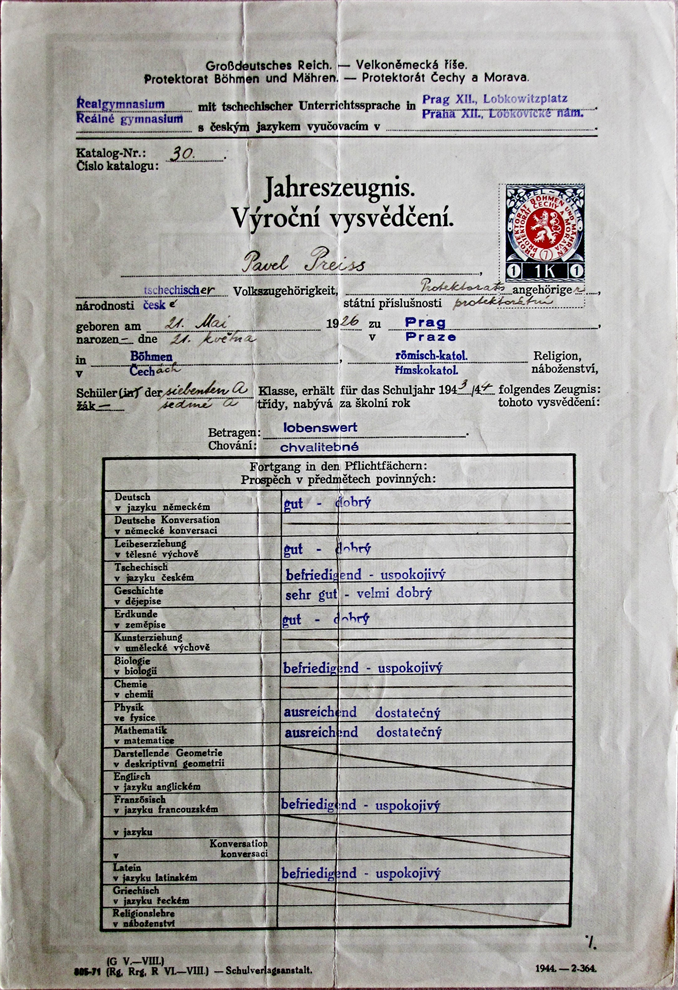 Großdeutsches Reich. — Velkoněmecká říše.
Protektorat Böhmen und Mähren. — Protektorát Čechy a Morava.
Realgymnasium mit tschechischer Unterrichtssprache in Prag XII., Lobkowitzplatz
Reálné gymnasium s českým jazykem vyučovacím v Praha XII., Lobkovické nám.
Katalog-Nr.: 30.
Číslo katalogu:
Jahreszeugnis.
Výroční vysvědčení.
STEMPEL-KOLEK
PROTEKTORAT BÖHMEN UND MÄHREN
PROTEKTORÁT ČECHY A MORAVA
7
1 1K 1
Pavel Preiss,
tschechischer Volkszugehörigkeit, Protektoratsangehöriger,
národnosti české státní příslušnosti protektorátní
geboren am 21. Mai 1926 zu Prag,
narozen — dne 21. května v Praze
in Böhmen, römisch-katol. Religion,
v Čechách římskokatol. náboženství,
Schüler (in) der siebenten A Klasse, erhält für das Schuljahr 1943/44 folgendes Zeugnis:
žák — sedmé A třídy, nabývá za školní rok tohoto vysvědčení:
Betragen: lobenswert.
Chování: chvalitebné
Fortgang in den Pflichtfächern:
Prospěch v předmětech povinných:
Deutsch
v jazyku německém gut - dobrý
Deutsche Konversation
v německé konversaci
Leibeserziehung
v tělesné výchově gut - dobrý
Tschechisch
v jazyku českém befriedigend - uspokojivý
Geschichte
v dějepise sehr gut - velmi dobrý
Erdkunde
v zeměpise gut - dobrý
Kunsterziehung
v umělecké výchově
Biologie
v biologii befriedigend - uspokojivý
Chemie
v chemii
Physik
ve fysice ausreichend dostatečný
Mathematik
v matematice ausreichend dostatečný
Darstellende Geometrie
v deskriptivní geometrii
Englisch
v jazyku anglickém
Französisch
v jazyku francouzském befriedigend - uspokojivý
v jazyku
Konversation
v konversaci
Latein
v jazyku latinském befriedigend - uspokojivý
Griechisch
v jazyku řeckém
Religionslehre
v náboženství
·/.
(G V.—VIII.)
805-71 (Rg, Rrg, R VI.—VIII.) — Schulverlagsanstalt. 1944. — 2-364.